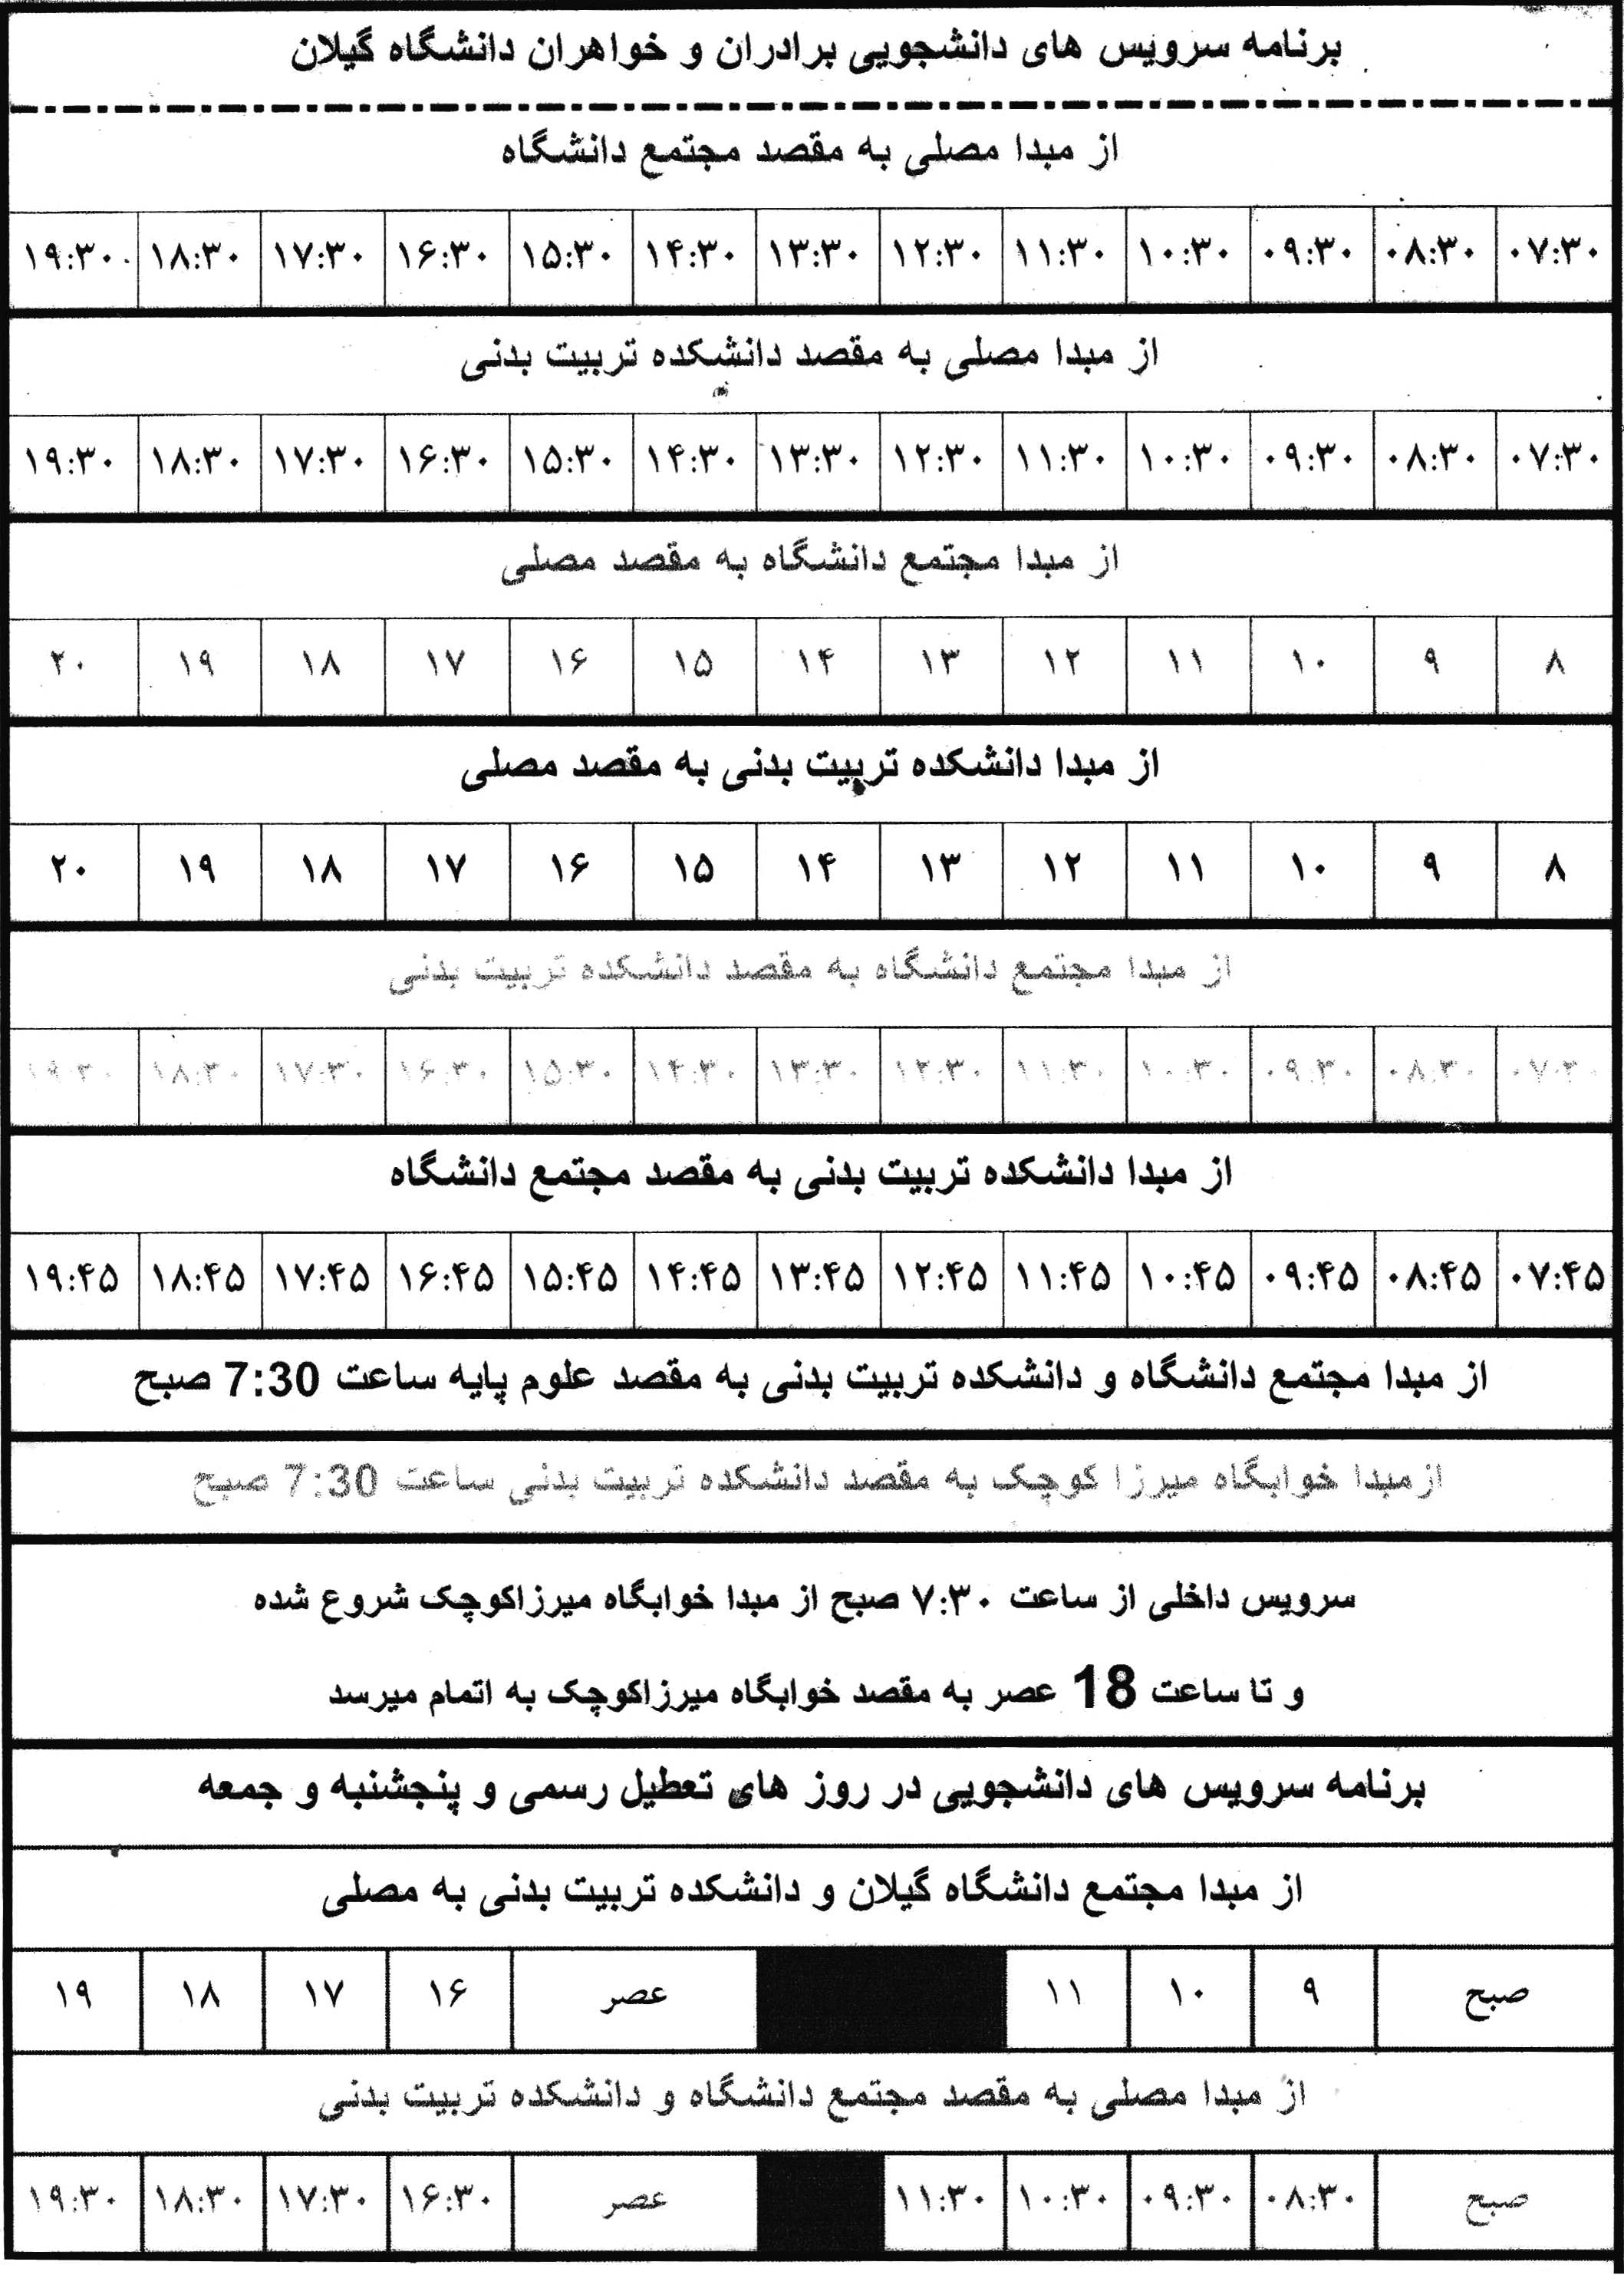 برنامه سرویس های دانشجویی برادران و خواهران دانشگاه گیلان
از مبدا مصلی به مقصد مجتمع دانشگاه
۰۷:۳۰ ۰۸:۳۰ ۰۹:۳۰ ۱۰:۳۰ ۱۱:۳۰ ۱۲:۳۰ ۱۳:۳۰ ۱۴:۳۰ ۱۵:۳۰ ۱۶:۳۰ ۱۷:۳۰ ۱۸:۳۰ ۱۹:۳۰
از مبدا مصلی به مقصد دانشکده تربیت بدنی
۰۷:۳۰ ۰۸:۳۰ ۰۹:۳۰ ۱۰:۳۰ ۱۱:۳۰ ۱۲:۳۰ ۱۳:۳۰ ۱۴:۳۰ ۱۵:۳۰ ۱۶:۳۰ ۱۷:۳۰ ۱۸:۳۰ ۱۹:۳۰
از مبدا مجتمع دانشگاه به مقصد مصلی
۸ ۹ ۱۰ ۱۱ ۱۲ ۱۳ ۱۴ ۱۵ ۱۶ ۱۷ ۱۸ ۱۹ ۲۰
از مبدا دانشکده تربیت بدنی به مقصد مصلی
۸ ۹ ۱۰ ۱۱ ۱۲ ۱۳ ۱۴ ۱۵ ۱۶ ۱۷ ۱۸ ۱۹ ۲۰
از مبدا مجتمع دانشگاه به مقصد دانشکده تربیت بدنی
۰۷:۳۰ ۰۸:۳۰ ۰۹:۳۰ ۱۰:۳۰ ۱۱:۳۰ ۱۲:۳۰ ۱۳:۳۰ ۱۴:۳۰ ۱۵:۳۰ ۱۶:۳۰ ۱۷:۳۰ ۱۸:۳۰ ۱۹:۳۰
از مبدا دانشکده تربیت بدنی به مقصد مجتمع دانشگاه
۰۷:۴۵ ۰۸:۴۵ ۰۹:۴۵ ۱۰:۴۵ ۱۱:۴۵ ۱۲:۴۵ ۱۳:۴۵ ۱۴:۴۵ ۱۵:۴۵ ۱۶:۴۵ ۱۷:۴۵ ۱۸:۴۵ ۱۹:۴۵
از مبدا مجتمع دانشگاه و دانشکده تربیت بدنی به مقصد علوم پایه ساعت 7:30 صبح
ازمبدا خوابگاه میرزا کوچک به مقصد دانشکده تربیت بدنی ساعت 7:30 صبح
سرویس داخلی از ساعت ۷:۳۰ صبح از مبدا خوابگاه میرزاکوچک شروع شده
و تا ساعت 18 عصر به مقصد خوابگاه میرزاکوچک به اتمام میرسد
برنامه سرویس های دانشجویی در روز های تعطیل رسمی و پنجشنبه و جمعه
از مبدا مجتمع دانشگاه گیلان و دانشکده تربیت بدنی به مصلی
صبح ۹ ۱۰ ۱۱ عصر ۱۶ ۱۷ ۱۸ ۱۹
از مبدا مصلی به مقصد مجتمع دانشگاه و دانشکده تربیت بدنی
صبح ۰۸:۳۰ ۰۹:۳۰ ۱۰:۳۰ ۱۱:۳۰ عصر ۱۶:۳۰ ۱۷:۳۰ ۱۸:۳۰ ۱۹:۳۰